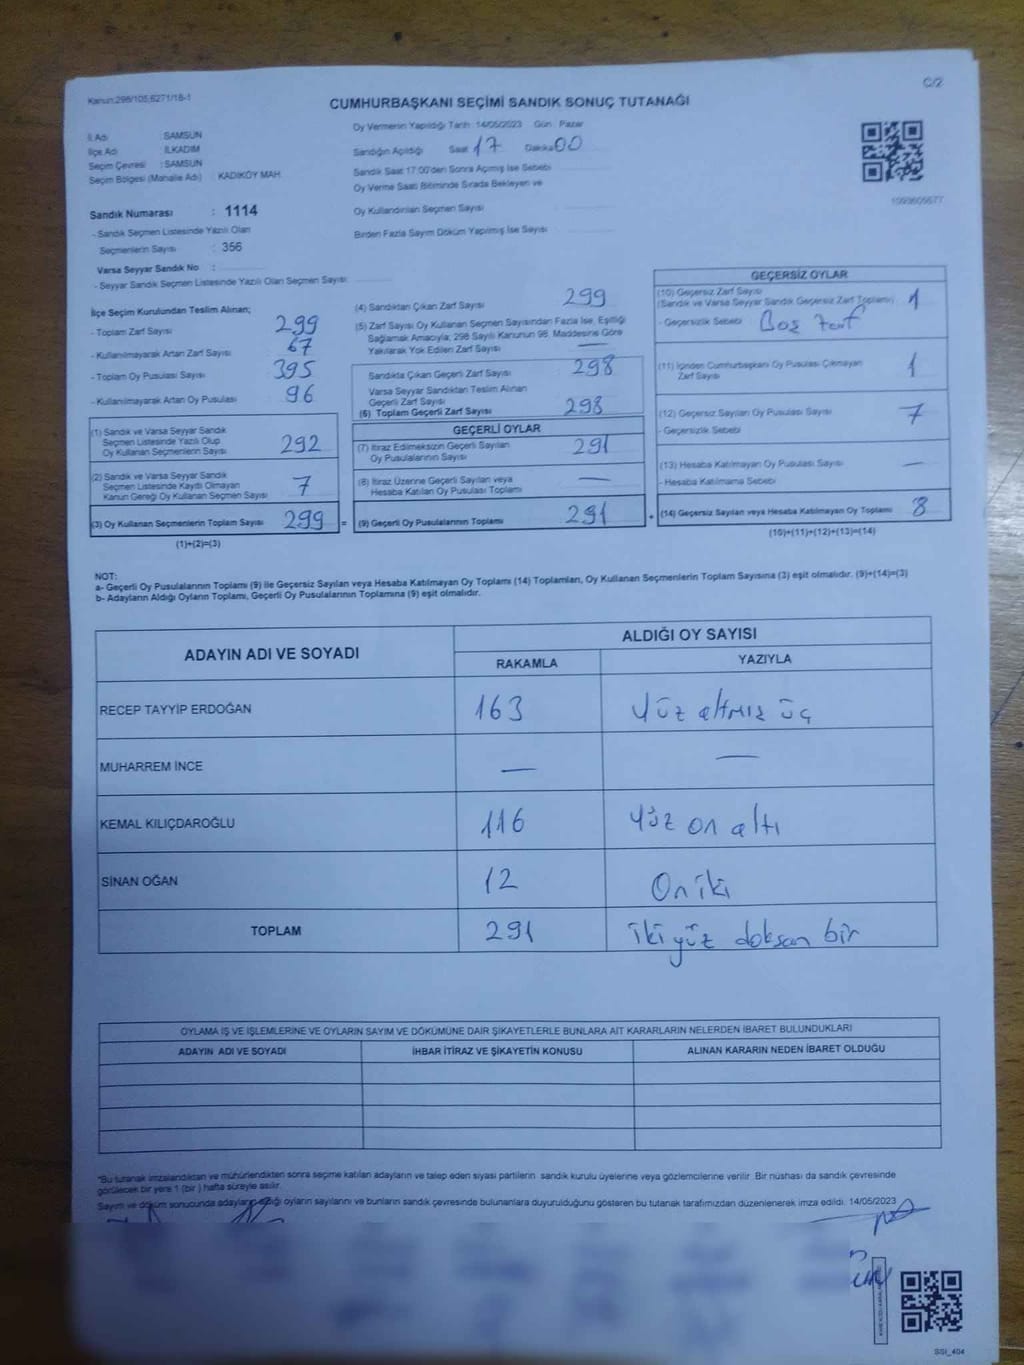 Kanun:298/105,6271/18-1
C/2
CUMHURBAŞKANI SEÇİMİ SANDIK SONUÇ TUTANAĞI
İl Adı : SAMSUN
İlçe Adı : İLKADIM
Seçim Çevresi : SAMSUN
Seçim Bölgesi (Mahalle Adı) : KADIKÖY MAH.
Oy Vermenin Yapıldığı Tarih :14/05/2023 Gün : Pazar
Sandığın Açıldığı Saat 17 Dakika 00
Sandık Saat 17:00'den Sonra Açılmış İse Sebebi
Oy Verme Saati Bitiminde Sırada Bekleyen ve
Oy Kullandırılan Seçmen Sayısı
Birden Fazla Sayım Döküm Yapılmış İse Sayısı
Sandık Numarası : 1114
- Sandık Seçmen Listesinde Yazılı Olan
Seçmenlerin Sayısı : 356
Varsa Seyyar Sandık No :
- Seyyar Sandık Seçmen Listesinde Yazılı Olan Seçmen Sayısı:
İlçe Seçim Kurulundan Teslim Alınan;
- Toplam Zarf Sayısı 299
- Kullanılmayarak Artan Zarf Sayısı 67
- Toplam Oy Pusulası Sayısı 395
- Kullanılmayarak Artan Oy Pusulası 96
(1) Sandık ve Varsa Seyyar Sandık
Seçmen Listesinde Yazılı Olup
Oy Kullanan Seçmenlerin Sayısı 292
(2) Sandık ve Varsa Seyyar Sandık
Seçmen Listesinde Kayıtlı Olmayan
Kanun Gereği Oy Kullanan Seçmen Sayısı 7
(3) Oy Kullanan Seçmenlerin Toplam Sayısı 299 =
(1)+(2)=(3)
(4) Sandıktan Çıkan Zarf Sayısı 299
(5) Zarf Sayısı Oy Kullanan Seçmen Sayısından Fazla İse, Eşitliği
Sağlamak Amacıyla; 298 Sayılı Kanunun 98. Maddesine Göre
Yakılarak Yok Edilen Zarf Sayısı —
Sandıkta Çıkan Geçerli Zarf Sayısı 298
Varsa Seyyar Sandıktan Teslim Alınan
Geçerli Zarf Sayısı
(6) Toplam Geçerli Zarf Sayısı 298
GEÇERLİ OYLAR
(7) İtiraz Edilmeksizin Geçerli Sayılan
Oy Pusulalarının Sayısı 291
(8) İtiraz Üzerine Geçerli Sayılan veya
Hesaba Katılan Oy Pusulası Toplamı —
(9) Geçerli Oy Pusulalarının Toplamı 291 +
1093605677
GEÇERSİZ OYLAR
(10) Geçersiz Zarf Sayısı
(Sandık ve Varsa Seyyar Sandık Geçersiz Zarf Toplamı) 1
- Geçersizlik Sebebi Boş zarf
(11) İçinden Cumhurbaşkanı Oy Pusulası Çıkmayan
Zarf Sayısı 1
(12) Geçersiz Sayılan Oy Pusulası Sayısı 7
- Geçersizlik Sebebi
(13) Hesaba Katılmayan Oy Pusulası Sayısı —
- Hesaba Katılmama Sebebi
(14) Geçersiz Sayılan veya Hesaba Katılmayan Oy Toplamı 8
(10)+(11)+(12)+(13)=(14)
NOT:
a- Geçerli Oy Pusulalarının Toplamı (9) ile Geçersiz Sayılan veya Hesaba Katılmayan Oy Toplamı (14) Toplamları, Oy Kullanan Seçmenlerin Toplam Sayısına (3) eşit olmalıdır. (9)+(14)=(3)
b- Adayların Aldığı Oyların Toplamı, Geçerli Oy Pusulalarının Toplamına (9) eşit olmalıdır.
ADAYIN ADI VE SOYADI
ALDIĞI OY SAYISI
RAKAMLA YAZIYLA
RECEP TAYYİP ERDOĞAN 163 Yüz altmış üç
MUHARREM İNCE — —
KEMAL KILIÇDAROĞLU 116 Yüz on altı
SİNAN OĞAN 12 On iki
TOPLAM 291 iki yüz doksan bir
OYLAMA İŞ VE İŞLEMLERİNE VE OYLARIN SAYIM VE DÖKÜMÜNE DAİR ŞİKAYETLERLE BUNLARA AİT KARARLARIN NELERDEN İBARET BULUNDUKLARI
ADAYIN ADI VE SOYADI İHBAR İTİRAZ VE ŞİKAYETİN KONUSU ALINAN KARARIN NEDEN İBARET OLDUĞU
*Bu tutanak imzalandıktan ve mühürlendikten sonra seçime katılan adayların ve talep eden siyasi partilerin sandık kurulu üyelerine veya gözlemcilerine verilir. Bir nüshası da sandık çevresinde
görülecek bir yere 1 (bir ) hafta süreyle asılır.
Sayım ve döküm sonucunda adayların aldığı oyların sayılarını ve bunların sandık çevresinde bulunanlara duyurulduğunu gösteren bu tutanak tarafımızdan düzenlenerek imza edildi. 14/05/2023
SSI_404